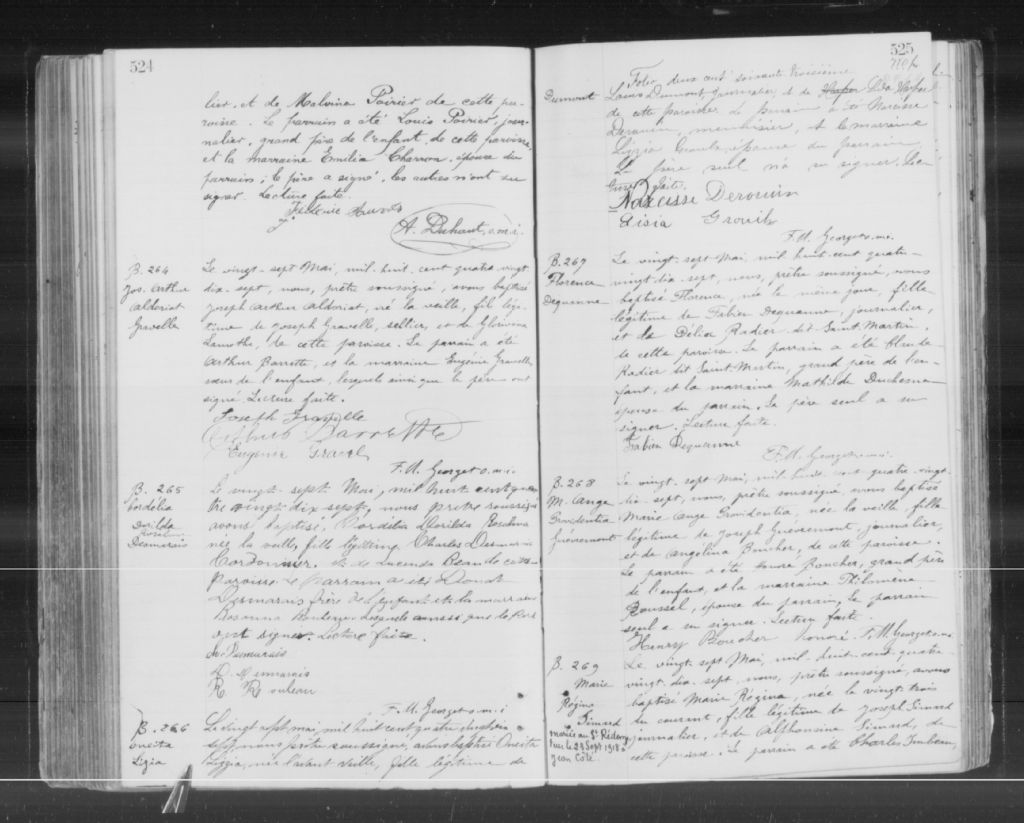 524
lier, et de Malvina Poirier de cette pa-
roisse. Le parrain a été Louis Poirier, jour-
nalier, grand père de l'enfant, de cette paroisse,
et la marraine Emilia Charron, épouse du
parrain; le père a signé, les autres n'ont su
signer. Lecture faite.
A. Duhaut, o.m.i.
B. 264
Jos. Arthur
Aldoriat
Gravelle
Le vingt-sept Mai, mil-huit-cent-quatre-vingt
dix-sept, nous, prêtre soussigné, avons baptisé
Joseph Arthur Aldoriat, né la veille, fils légi-
time de Joseph Gravelle, sellier, et de
Lamothe, de cette paroisse. Le parrain a été
Arthur Barrette, et la marraine Eugénie Gravelle
sœur de l'enfant, lesquels ainsi que le père ont
signé. Lecture faite.
Joseph Gravelle
Arthur Barrette
Eugénie Gravel
F. M. Georget o.m.i.
B. 265
Cordélia
Dorilda
Roselima
Desmarais
Le vingt-sept Mai, mil huit cent qua
tre vingt dix sept, nous prêtre soussigné
avons baptisé, Cordélia Dorilda Roselima
née la veille, fille légitime Charles Desmarais
Cordonnier et de Lucenda Beau de cette
Paroisse Le Parrain a été Donat
Desmarais frère de l'enfant et la marraine
Rosanna lesquels aussi que le Père
ont signer. Lecture faite.
Desmarais
D. Desmarais
R. Rouleau
F. M. Georget o.m.i
B. 266
Onesita
Lizia
Le vingt sept mai, mil huit cent quatre vingt dix
sept, nous prêtre soussigné, avons baptisé Onesita
Lizzia, née l'avant veille, fille légitime de
525
Dumont
Folio deux cent soixante troisième
Louis Dumont, journalier, et de Harper
de cette paroisse. Le parrain a été Narcisse
Derouin, menuisier, et la marraine
Lizzia épouse du parrain
Le père seul n'a su signer. Lec-
ture faite.
Narcisse Derouin
Lisia Groulx
F. M. Georget o.m.i.
B. 267
Florence
Dequanne
Le vingt-sept Mai, mil huit-cent quatre-
vingt-dix-sept, nous, prêtre soussigné, avons
baptisé Florence, née le même jour, fille
légitime de Fabien Dequanne, journalier,
et de Délia Radier dit Saint-Martin,
de cette paroisse. Le parrain a été
Radier dit Saint-Martin, grand père de l'en-
fant, et la marraine Mathilde Duchesne
épouse du parrain. Le père seul a su
signer. Lecture faite.
Fabien Dequanne
F. M. Georget o.m.i.
B. 268
M. Ange
Providentia
Guévremont
Le vingt-sept Mai, mil-huit-cent-quatre-vingt-
dix-sept, nous, prêtre soussigné, avons baptisé
Marie Ange Providentia, née la veille, fille
légitime de Joseph Guévremont, journalier,
et de Angélina Boucher, de cette paroisse.
Le parrain a été Honoré Boucher, grand père
de l'enfant, et la marraine Philomène
Roussel, épouse du parrain, le parrain
seul a su signer. Lecture faite.
Henry Boucher honoré F. M. Georget o.m.i
B. 269
Marie
Régina
Simard
mariée au St Rédemp
teur le 23 Sept 1918 à
Jean Côté.
Le vingt-sept Mai, mil-huit-cent-quatre-
vingt-dix-sept, nous, prêtre soussigné, avons
baptisé Marie Régina, née le vingt-trois
du courant, fille légitime de Joseph Simard
journalier, et de Alphonsine Simard, de
cette paroisse. Le parrain a été Charles